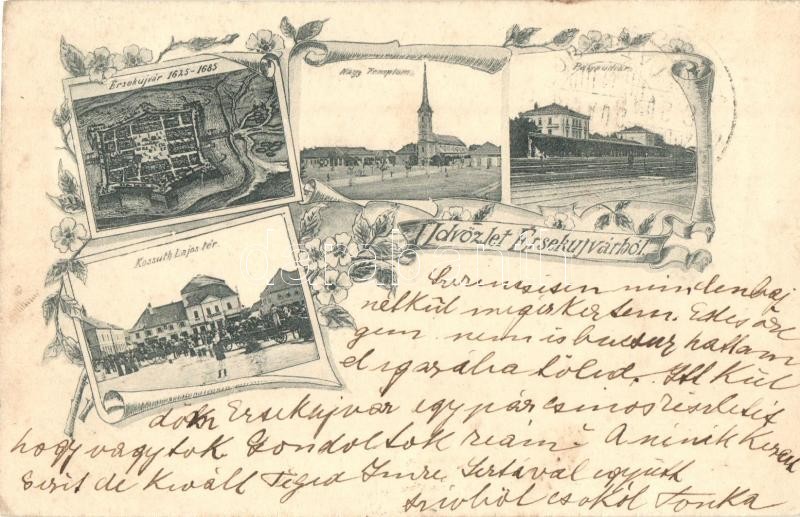 Érsekujvár 1625-1685
Nagy Templom
Pályaudvar
Kossuth Lajos tér
Üdvözlet Érsekujvárból.
Szerencsésen minden baj
nélkül megérkeztem. Édes özé
gem nem is bucsuz hattam
el igazába tőled. Itt Kül
döm Ersekujvar egy pár csinos részletét
hogy vagytok. Gondoltok reám? A nénik
de Kiváltt Téged Imre Sertával együtt
szivből csókol Tonka